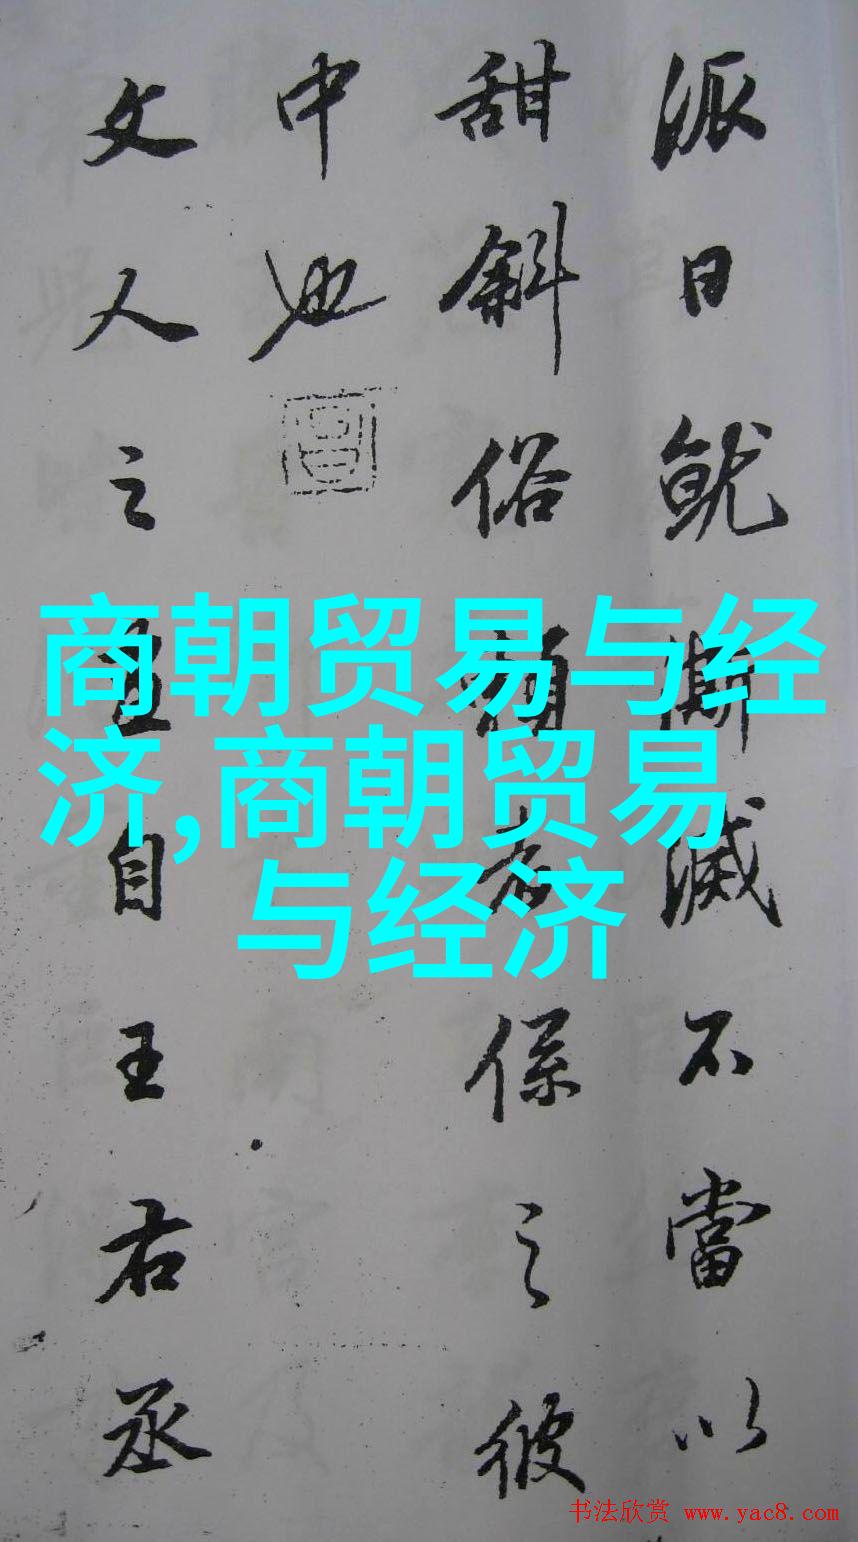 派日就澌滅不當以
甜斜俗賴者係之彼
中也
文人之畫自王右丞
商朝贸易与经
济,商朝贸易
与经济
书法欣赏 www.yac8.com